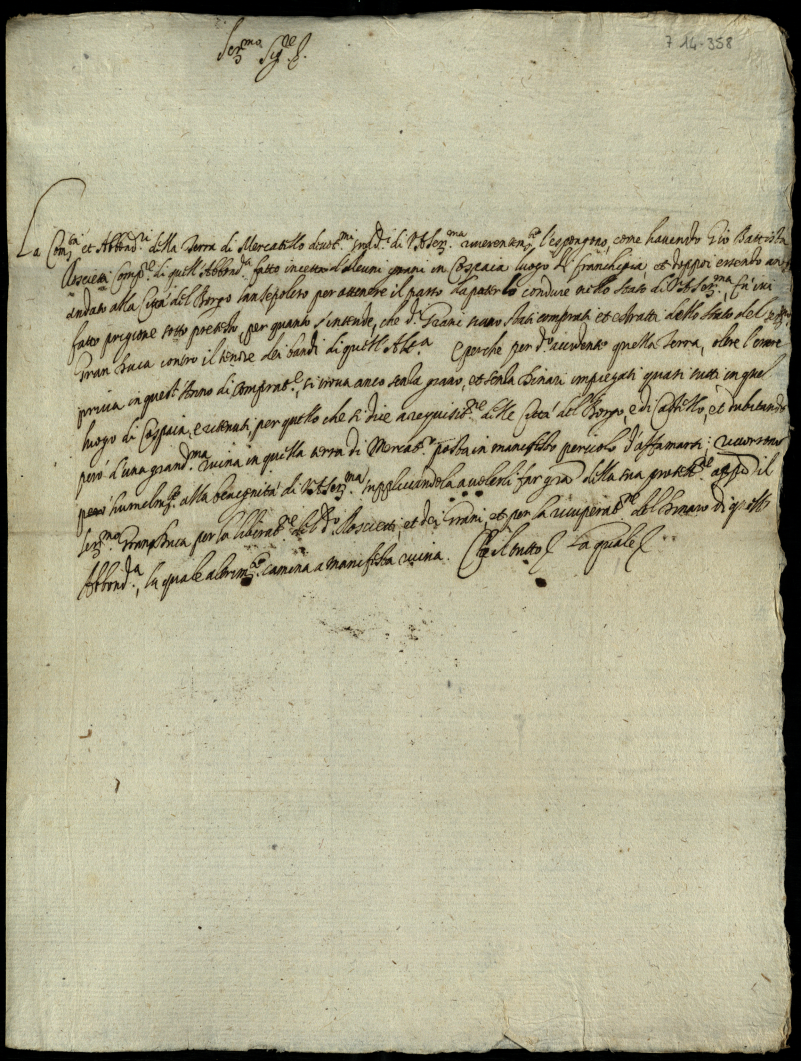 7 14-358
Ser.mo Sig.re
La Com.tà et Abbond.ri della Terra di Mercatello devot.mi sudd.i di V.A. Ser.ma riverentem.te l'espongono, come havendo Gio Battista
Comp.re di quell'Abbond.za fatto incetta d'alcuni grani in Cospaia luogo di franchigia, et doppoi essendo
andato alla Città del Borgo San Sepolcro per ottenere il passo da poterli condure nello Stato di V.A. Ser.ma, fu ivi
fatto prigione sotto pretesto, per quanto s'intende, che d.i Grani siano stati comprati et estratti dello Stato del Ser.mo
Gran Duca contro il tenore dei bandi di quell'Alt.a E perche per d.o accidente quella Terra, oltre l'essere
priva in quest'Anno di Comprat.re, si trova anco senza grano, et senza Denari impiegati quasi tutti in quel
luogo di Cospaia, e ritenuti, per quello che si dice a requisit.ne delle Città del Borgo, e di Castello, et dubitando
però d'una grand.ma ruina in quella terra di Mercat.o posta in manifesto pericolo d'affamarsi: ricorrono
però humelm.te alla benegnità di V.A. Ser.ma supplicandola a volerli far gra della sua protett.ne appo il
Ser.mo Gran Duca per la liberat.ne del d.o et dei Grani, et per la recuperat.ne del Denaro di quell'
Abbond.a, la quale altrim.te camina a manifesta ruina. Che il tutto La quale